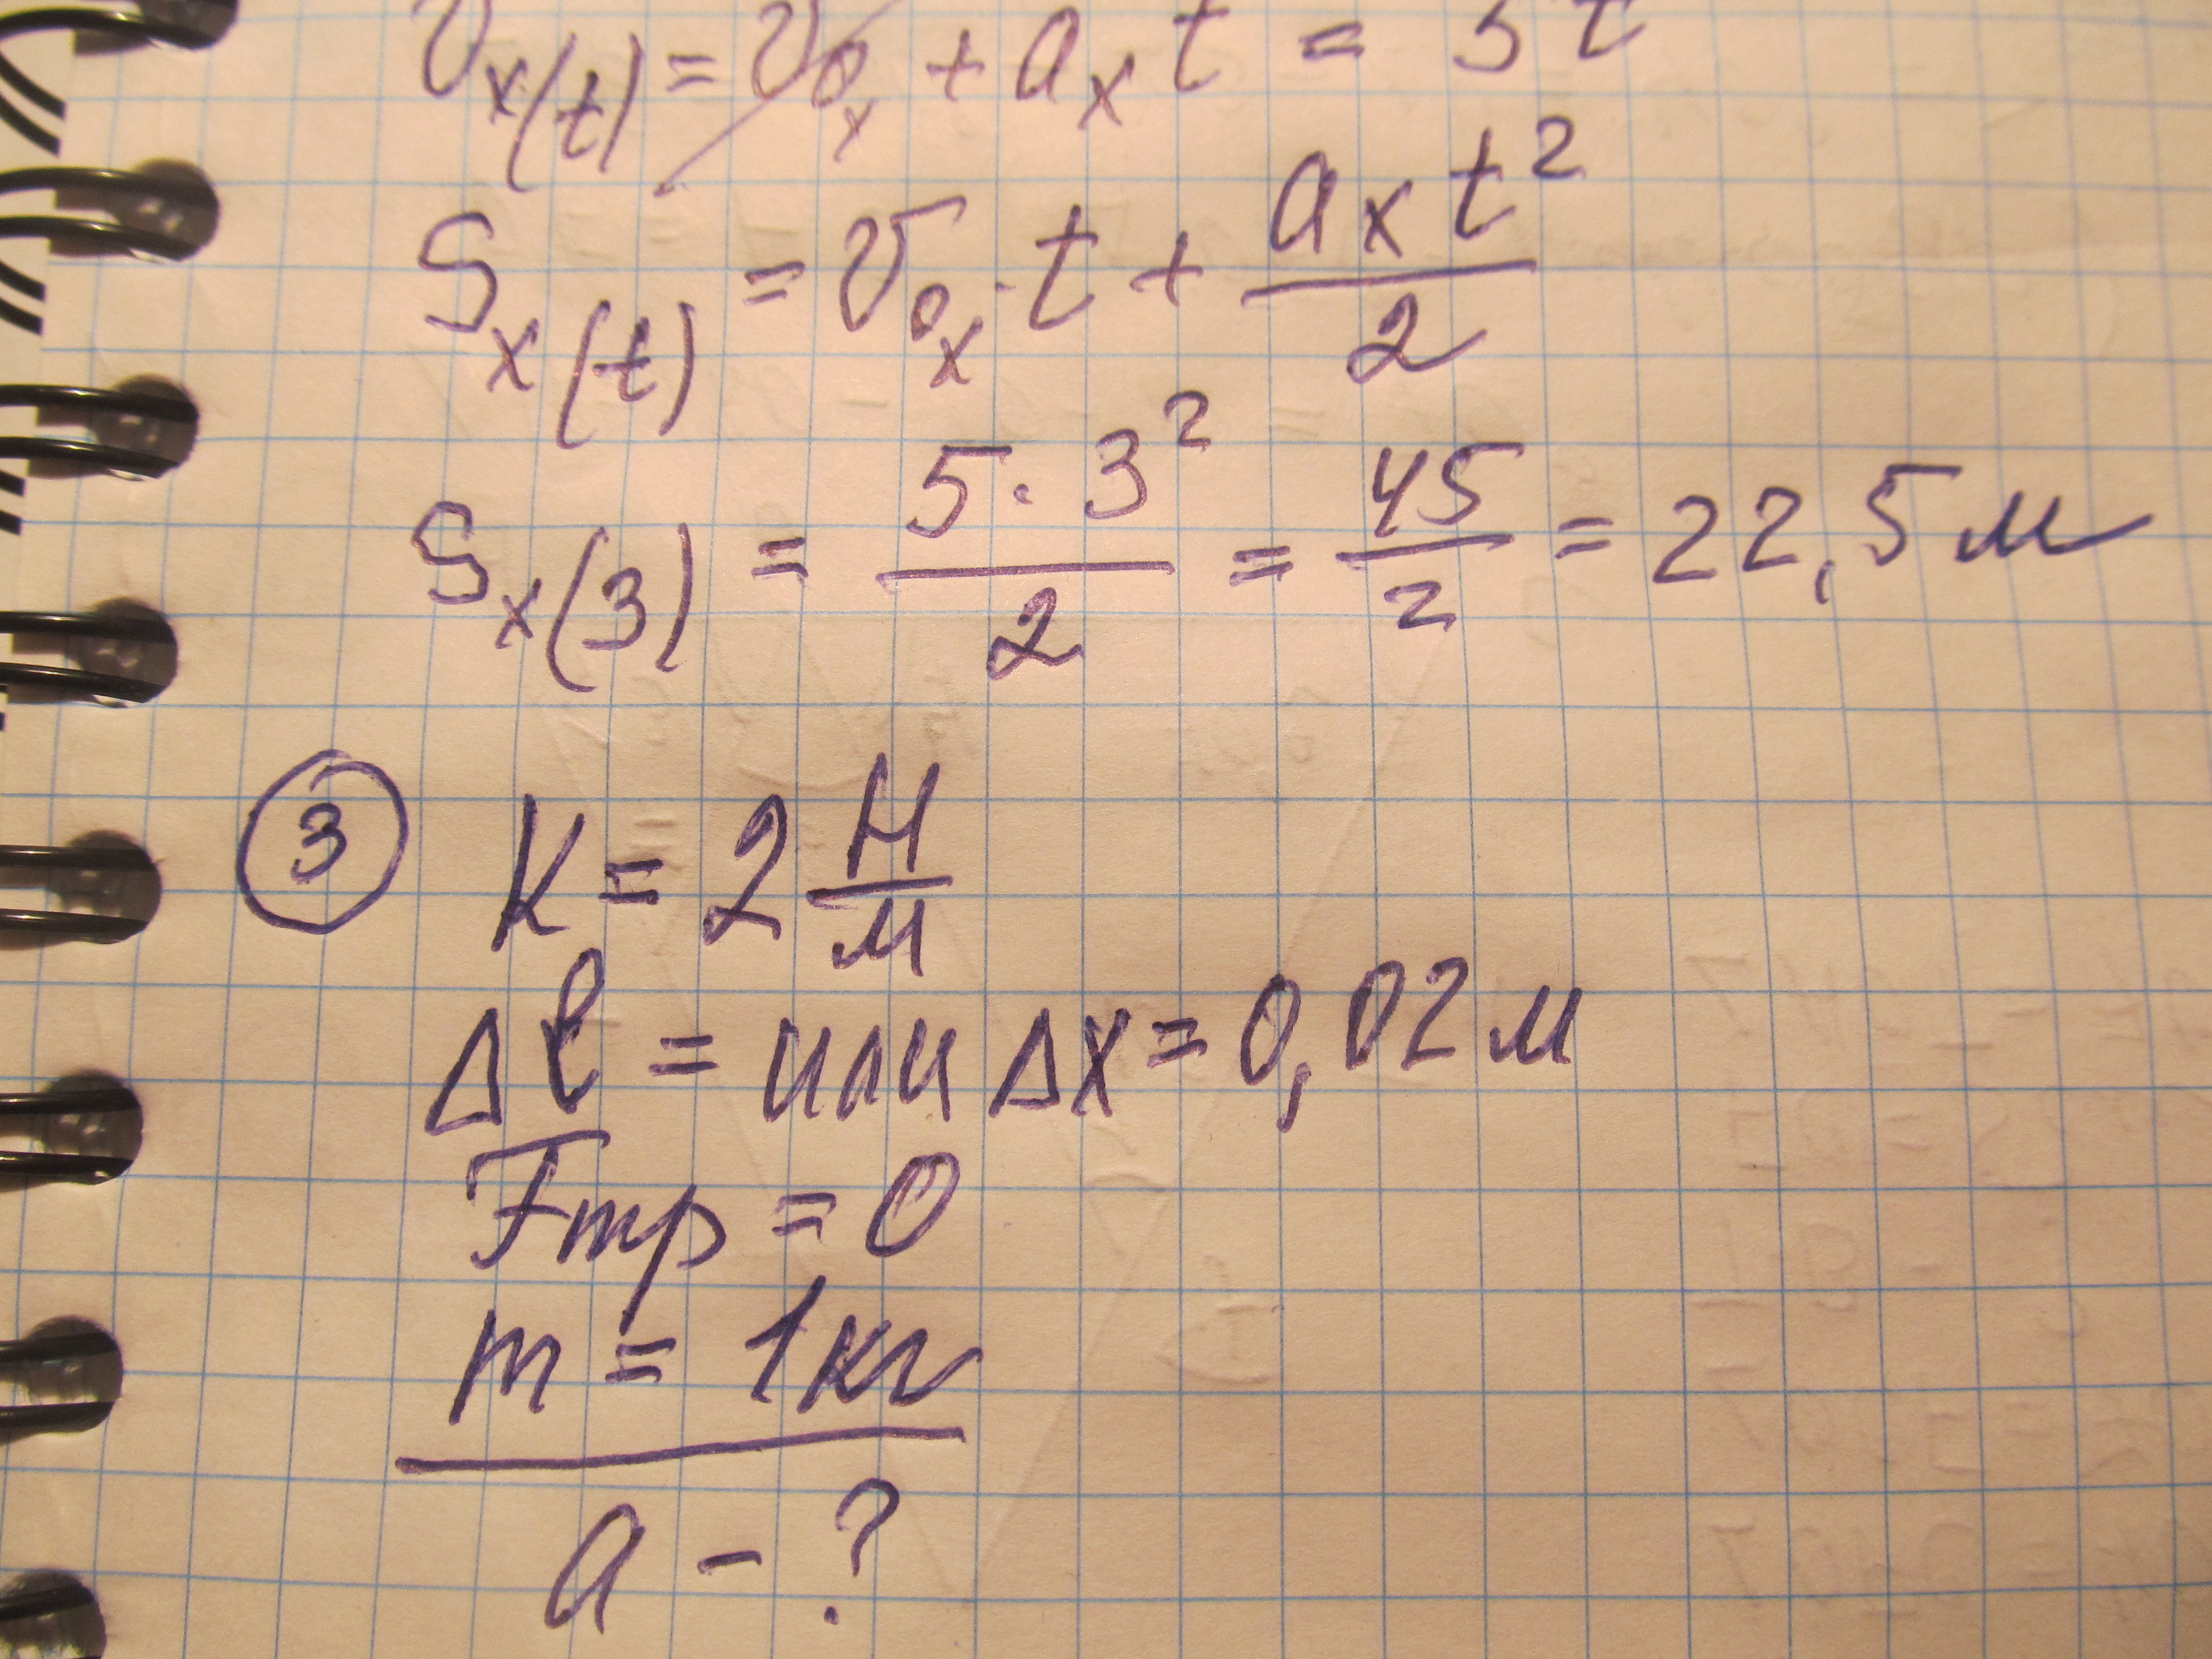 Vx(t) = V0x + ax t = 5t
Sx(t) = V0x · t + ax t² / 2
Sx(3) = 5 · 3² / 2 = 45 / 2 = 22,5 м
3 K = 2 Н/м
Δl = или Δx = 0,02 м
Fтр = 0
m = 1 кг
a - ?